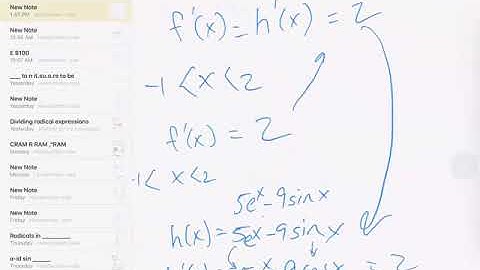 New Note
1:51 PM
New Note
E $100
___ to n it.su.a.re to be
Yesterday
New Note
Yesterday
Dividing radical expressions
Yesterday
CRAM R RAM ,"RAM
Monday
New Note
Monday
New Note
Friday
New Note
Thursday
Radicals in ________
Thursday
a-id sin ______
Thursday
f'(x) = h'(x) = 2
-1 < x < 2
f'(x) = 2
-1 < x < 2
5e^x - 9sinx
h(x) = 5e^x - 9sinx
= 2